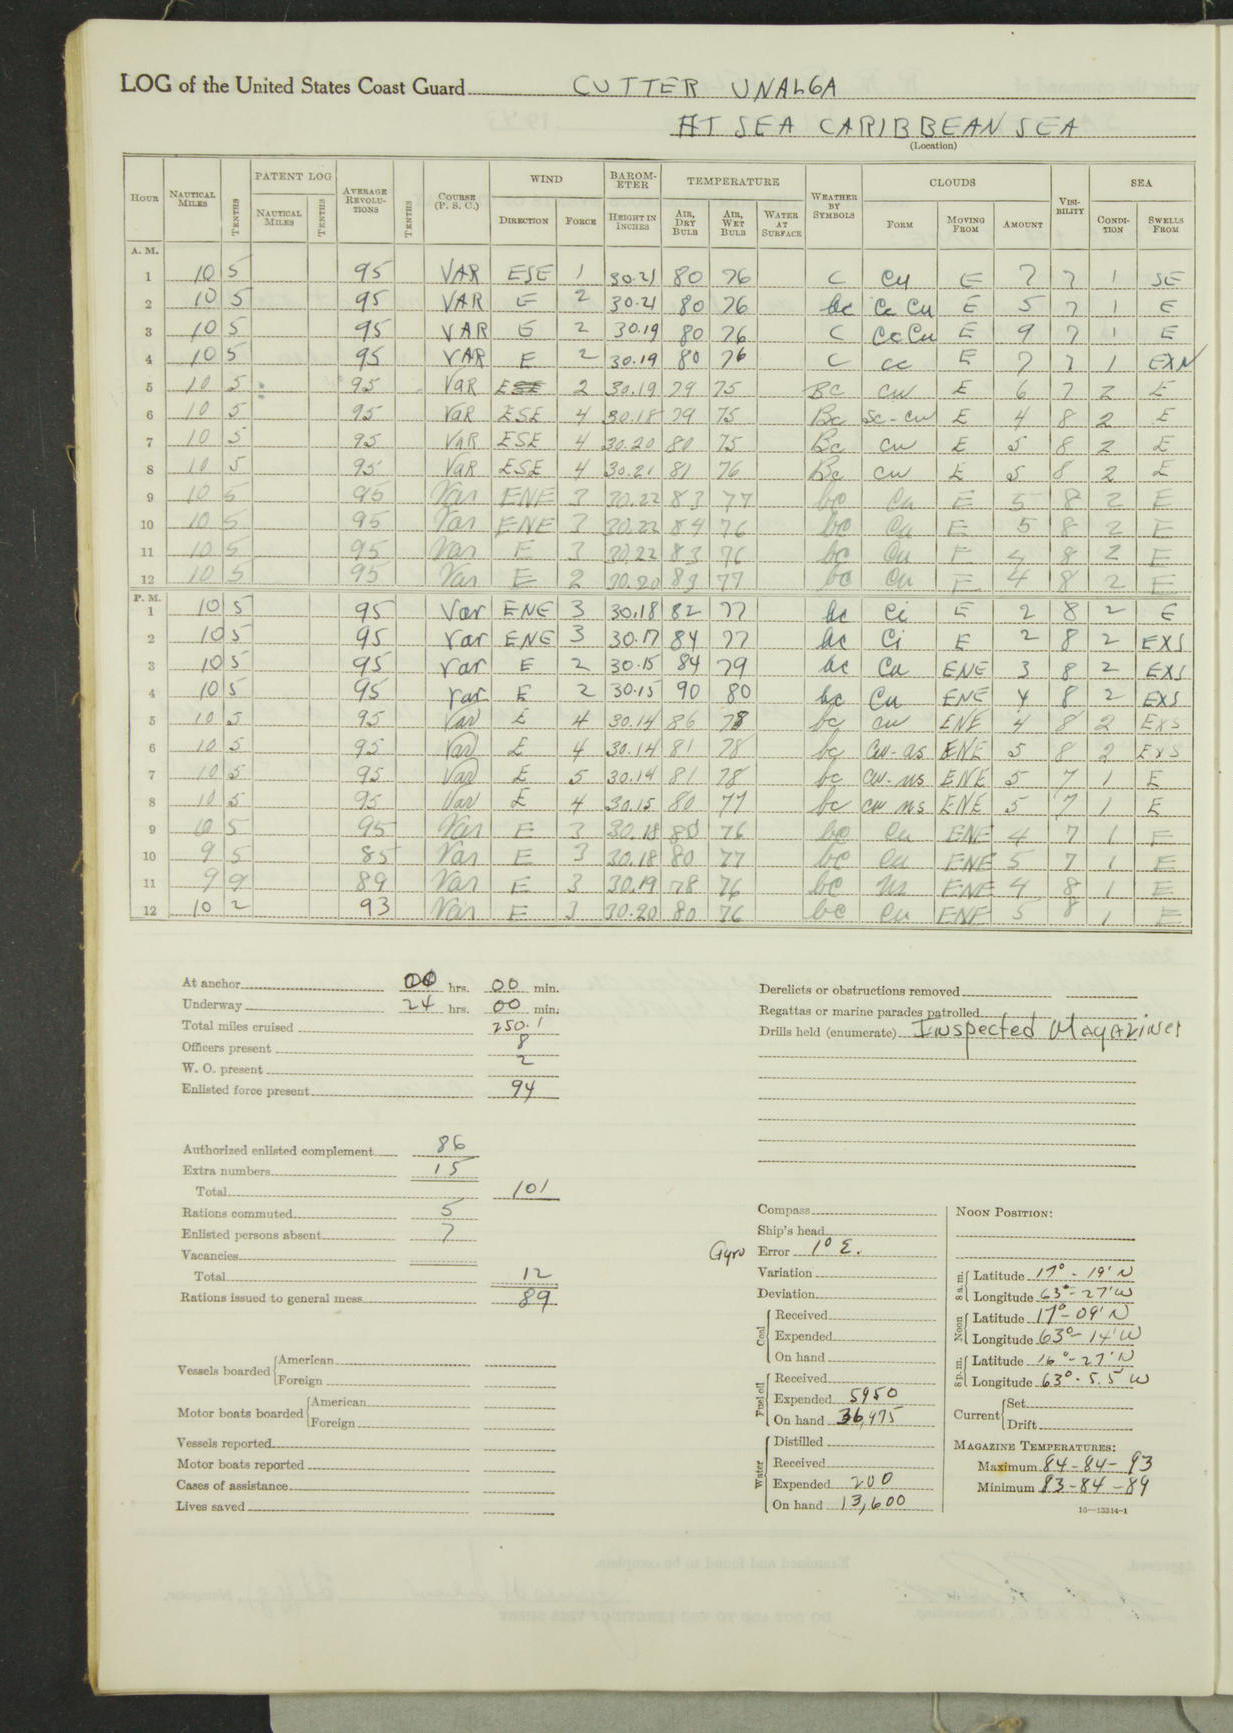 LOG of the United States Coast Guard CUTTER UNALGA
AT SEA CARIBBEAN SEA
(Location)
HOUR NAUTICAL MILES TENTHS PATENT LOG NAUTICAL MILES TENTHS AVERAGE REVOLUTIONS TENTHS COURSE (P. S. C.) WIND DIRECTION FORCE BAROMETER HEIGHT IN INCHES TEMPERATURE AIR, DRY BULB AIR, WET BULB WATER AT SURFACE WEATHER BY SYMBOLS CLOUDS FORM MOVING FROM AMOUNT VISIBILITY SEA CONDITION SWELLS FROM
A. M.
1 10 5 95 VAR ESE 1 30.21 80 76 C Cu E 7 7 1 SE
2 10 5 95 VAR E 2 30.21 80 76 bc Cc Cu E 5 7 1 E
3 10 5 95 VAR E 2 30.19 80 76 C CcCu E 9 7 1 E
4 10 5 95 VAR E 2 30.19 80 76 C cc E 7 7 1 EXN
5 10 5 95 VAR E 2 30.19 79 75 Bc cu E 6 7 2 E
6 10 5 95 VAR ESE 4 30.18 79 75 Bc sc-cu E 4 8 2 E
7 10 5 95 VAR ESE 4 30.20 80 75 Bc cu E 5 8 2 E
8 10 5 95 VAR ESE 4 30.21 81 76 Bc cu E 5 8 2 E
9 10 5 95 Var ENE 3 30.22 83 77 bc Cu E 5 8 2 E
10 10 5 95 Var ENE 3 30.22 84 76 bc Cu E 5 8 2 E
11 10 5 95 Var E 3 30.22 83 76 bc Cu E 4 8 2 E
12 10 5 95 Var E 2 30.20 83 77 bc Cu E 4 8 2 E
P. M.
1 10 5 95 Var ENE 3 30.18 82 77 bc Ci E 2 8 2 E
2 10 5 95 Var ENE 3 30.17 84 77 bc Ci E 2 8 2 EXS
3 10 5 95 Var E 2 30.15 84 79 bc Cu ENE 3 8 2 EXS
4 10 5 95 Var E 2 30.15 90 80 bc Cu ENE 4 8 2 EXS
5 10 5 95 Var E 4 30.14 86 78 bc cu ENE 4 8 2 EXS
6 10 5 95 Var E 4 30.14 81 78 bc cu-as ENE 5 8 2 EXS
7 10 5 95 Var E 5 30.14 81 78 bc cu-ns ENE 5 7 1 E
8 10 5 95 Var E 4 30.15 80 77 bc cu ns ENE 5 7 1 E
9 10 5 95 Var E 3 30.18 80 76 bc Cu ENE 4 7 1 E
10 9 5 85 Var E 3 30.18 80 77 bc Cu ENE 5 7 1 E
11 9 9 89 Var E 3 30.19 78 76 bc ENE 4 8 1 E
12 10 2 93 Var E 3 30.20 80 76 bc Cu ENE 5 8 1 E
At anchor 00 hrs. 00 min.
Underway 24 hrs. 00 min.
Total miles cruised 250.1
Officers present 8
W. O. present 2
Enlisted force present 94
Authorized enlisted complement 86
Extra numbers 15
Total 101
Rations commuted 5
Enlisted persons absent 7
Vacancies
Total 12
Rations issued to general mess 89
Vessels boarded American
Foreign
Motor boats boarded American
Foreign
Vessels reported
Motor boats reported
Cases of assistance
Lives saved
Derelicts or obstructions removed
Regattas or marine parades patrolled
Drills held (enumerate) Inspected Magazines
Compass
Ship's head
Gyro Error 1° E.
Variation
Deviation
Coal Received
Expended
On hand
Fuel oil Received
Expended 5950
On hand 36,975
Water Distilled
Received
Expended 200
On hand 13,600
NOON POSITION:
8 a. m. Latitude 17° - 19' N
Longitude 63° - 27' W
Noon Latitude 17° - 09' N
Longitude 63° - 14' W
8 p. m. Latitude 16° - 27' N
Longitude 63° - 5.5' W
Current Set
Drift
MAGAZINE TEMPERATURES:
Maximum 84-84-93
Minimum 83-84-89
16—13314-1